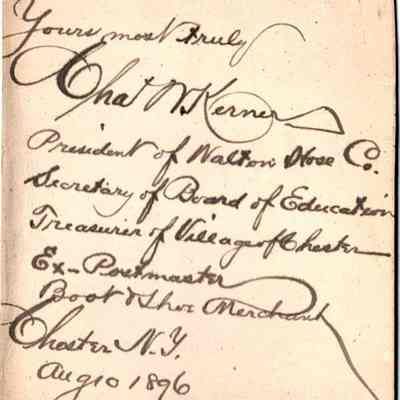 Yours most truly
Chas W Kerner
President of Walton Hose Co.
Secretary of Board of Education
Treasurer of Village of Chester
Ex-Postmaster
Boot & Shoe Merchant
Chester N.Y.
Aug 10 1896